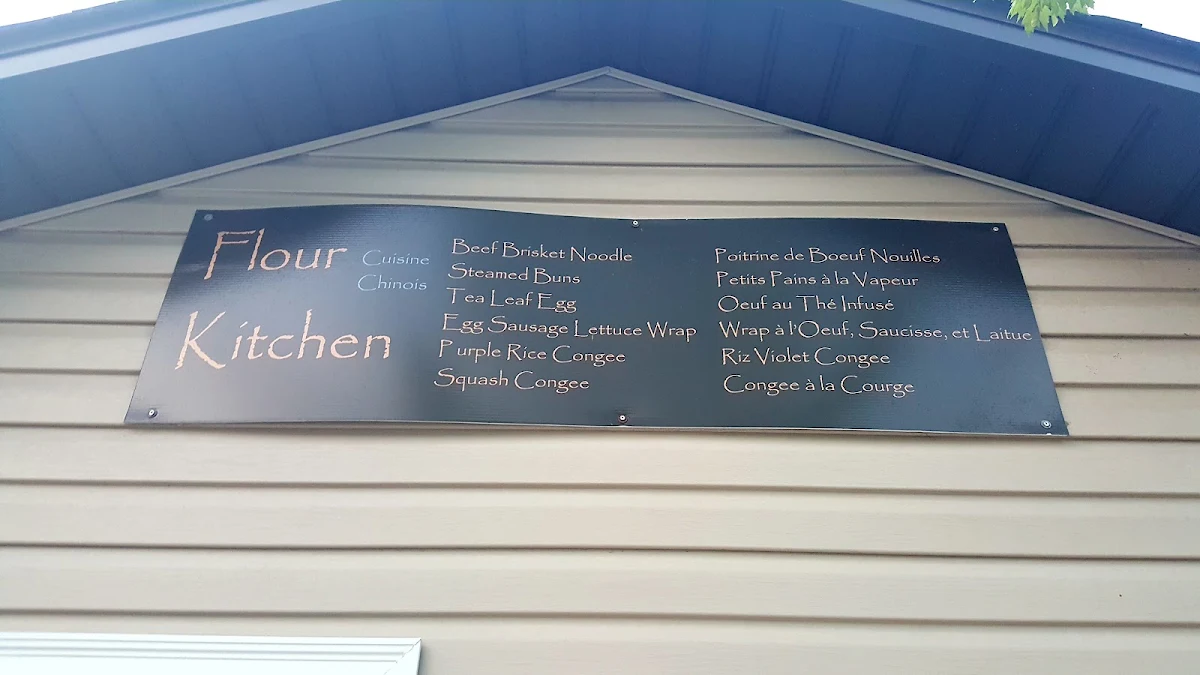 Flour
Kitchen
Cuisine
Chinois
Beef Brisket Noodle
Steamed Buns
Tea Leaf Egg
Egg Sausage Lettuce Wrap
Purple Rice Congee
Squash Congee
Poitrine de Boeuf Nouilles
Petits Pains à la Vapeur
Oeuf au Thé Infusé
Wrap à l'Oeuf, Saucisse, et Laitue
Riz Violet Congee
Congee à la Courge